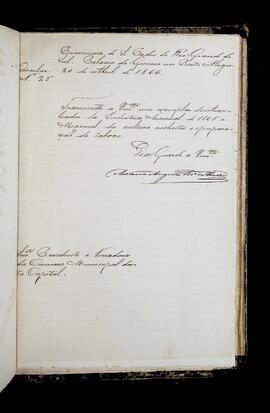 Provincia de S. Pedro do Rio Grande do
Sul. Palacio do Governo em Porto Alegre
20 de Abril de 1866.
Circular
Nº 25
Transmitto a Vmces um exemplar do Auxi-
liador da Industria Nacional de 1865 e
Manual da cultura, colheita e prepara-
ção do tabaco.
Deos Guarde a Vmces
Antonio Augusto Per da Cunha
Snrs Presidente e Vereadores
da Camara Municipal des-
ta Capital.